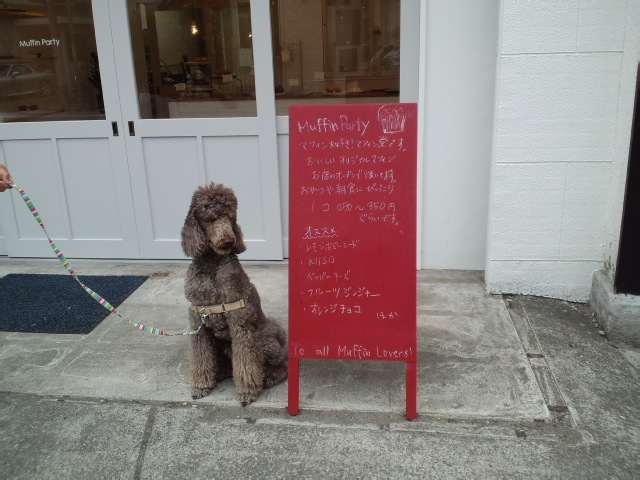 Muffin Party
Muffin Party
マフィン大好き!マフィン堂です。
おいしいオリジナルマフィン
お店のオーブンで焼いてます。
おやつや朝食にぴったり
1コ 350円
ぐらいです。
オススメ
・レモンポピーシード
・MISO
・ペッパーチーズ
・フルーツジンジャー
・オレンジチョコ ほか
To all Muffin Lovers!